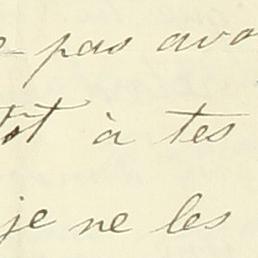 pas avo
tôt à tes
je ne les